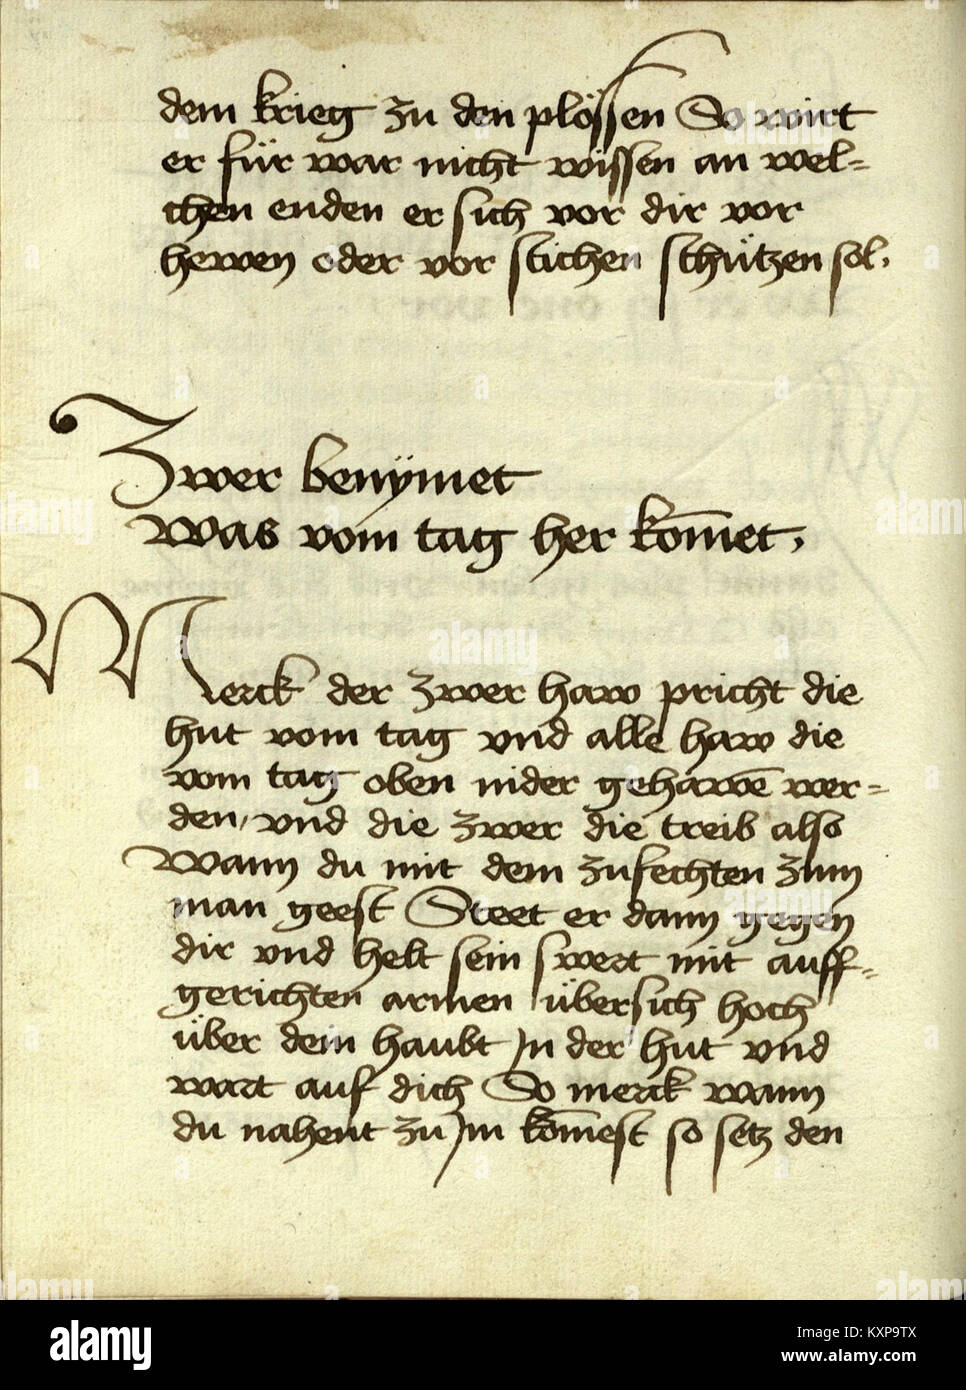 dem krieg zu den plössen So wirt
er für war nicht wissen an wel=
chen enden er sich vor dir vor
hewen oder vor stichen schützen sol.
Zwer benÿmet
was vom tag her kom̄et.
Merck der zwer haw pricht die
hut vom tag vnd alle haw die
vom tag oben nider gehawē wer=
den, vnd die zwer die treib also
Wann du mit dem zufechten zum
man geest Steet er dann gegen
dir vnd helt sein swert mit auff=
gerichten armen übersich hoch
über dem haubt Jn der hut vnd
wart auf dich So merck wann
du nahent zu Jm kom̄est so setz den
alamy
KXP9TX
www.alamy.com